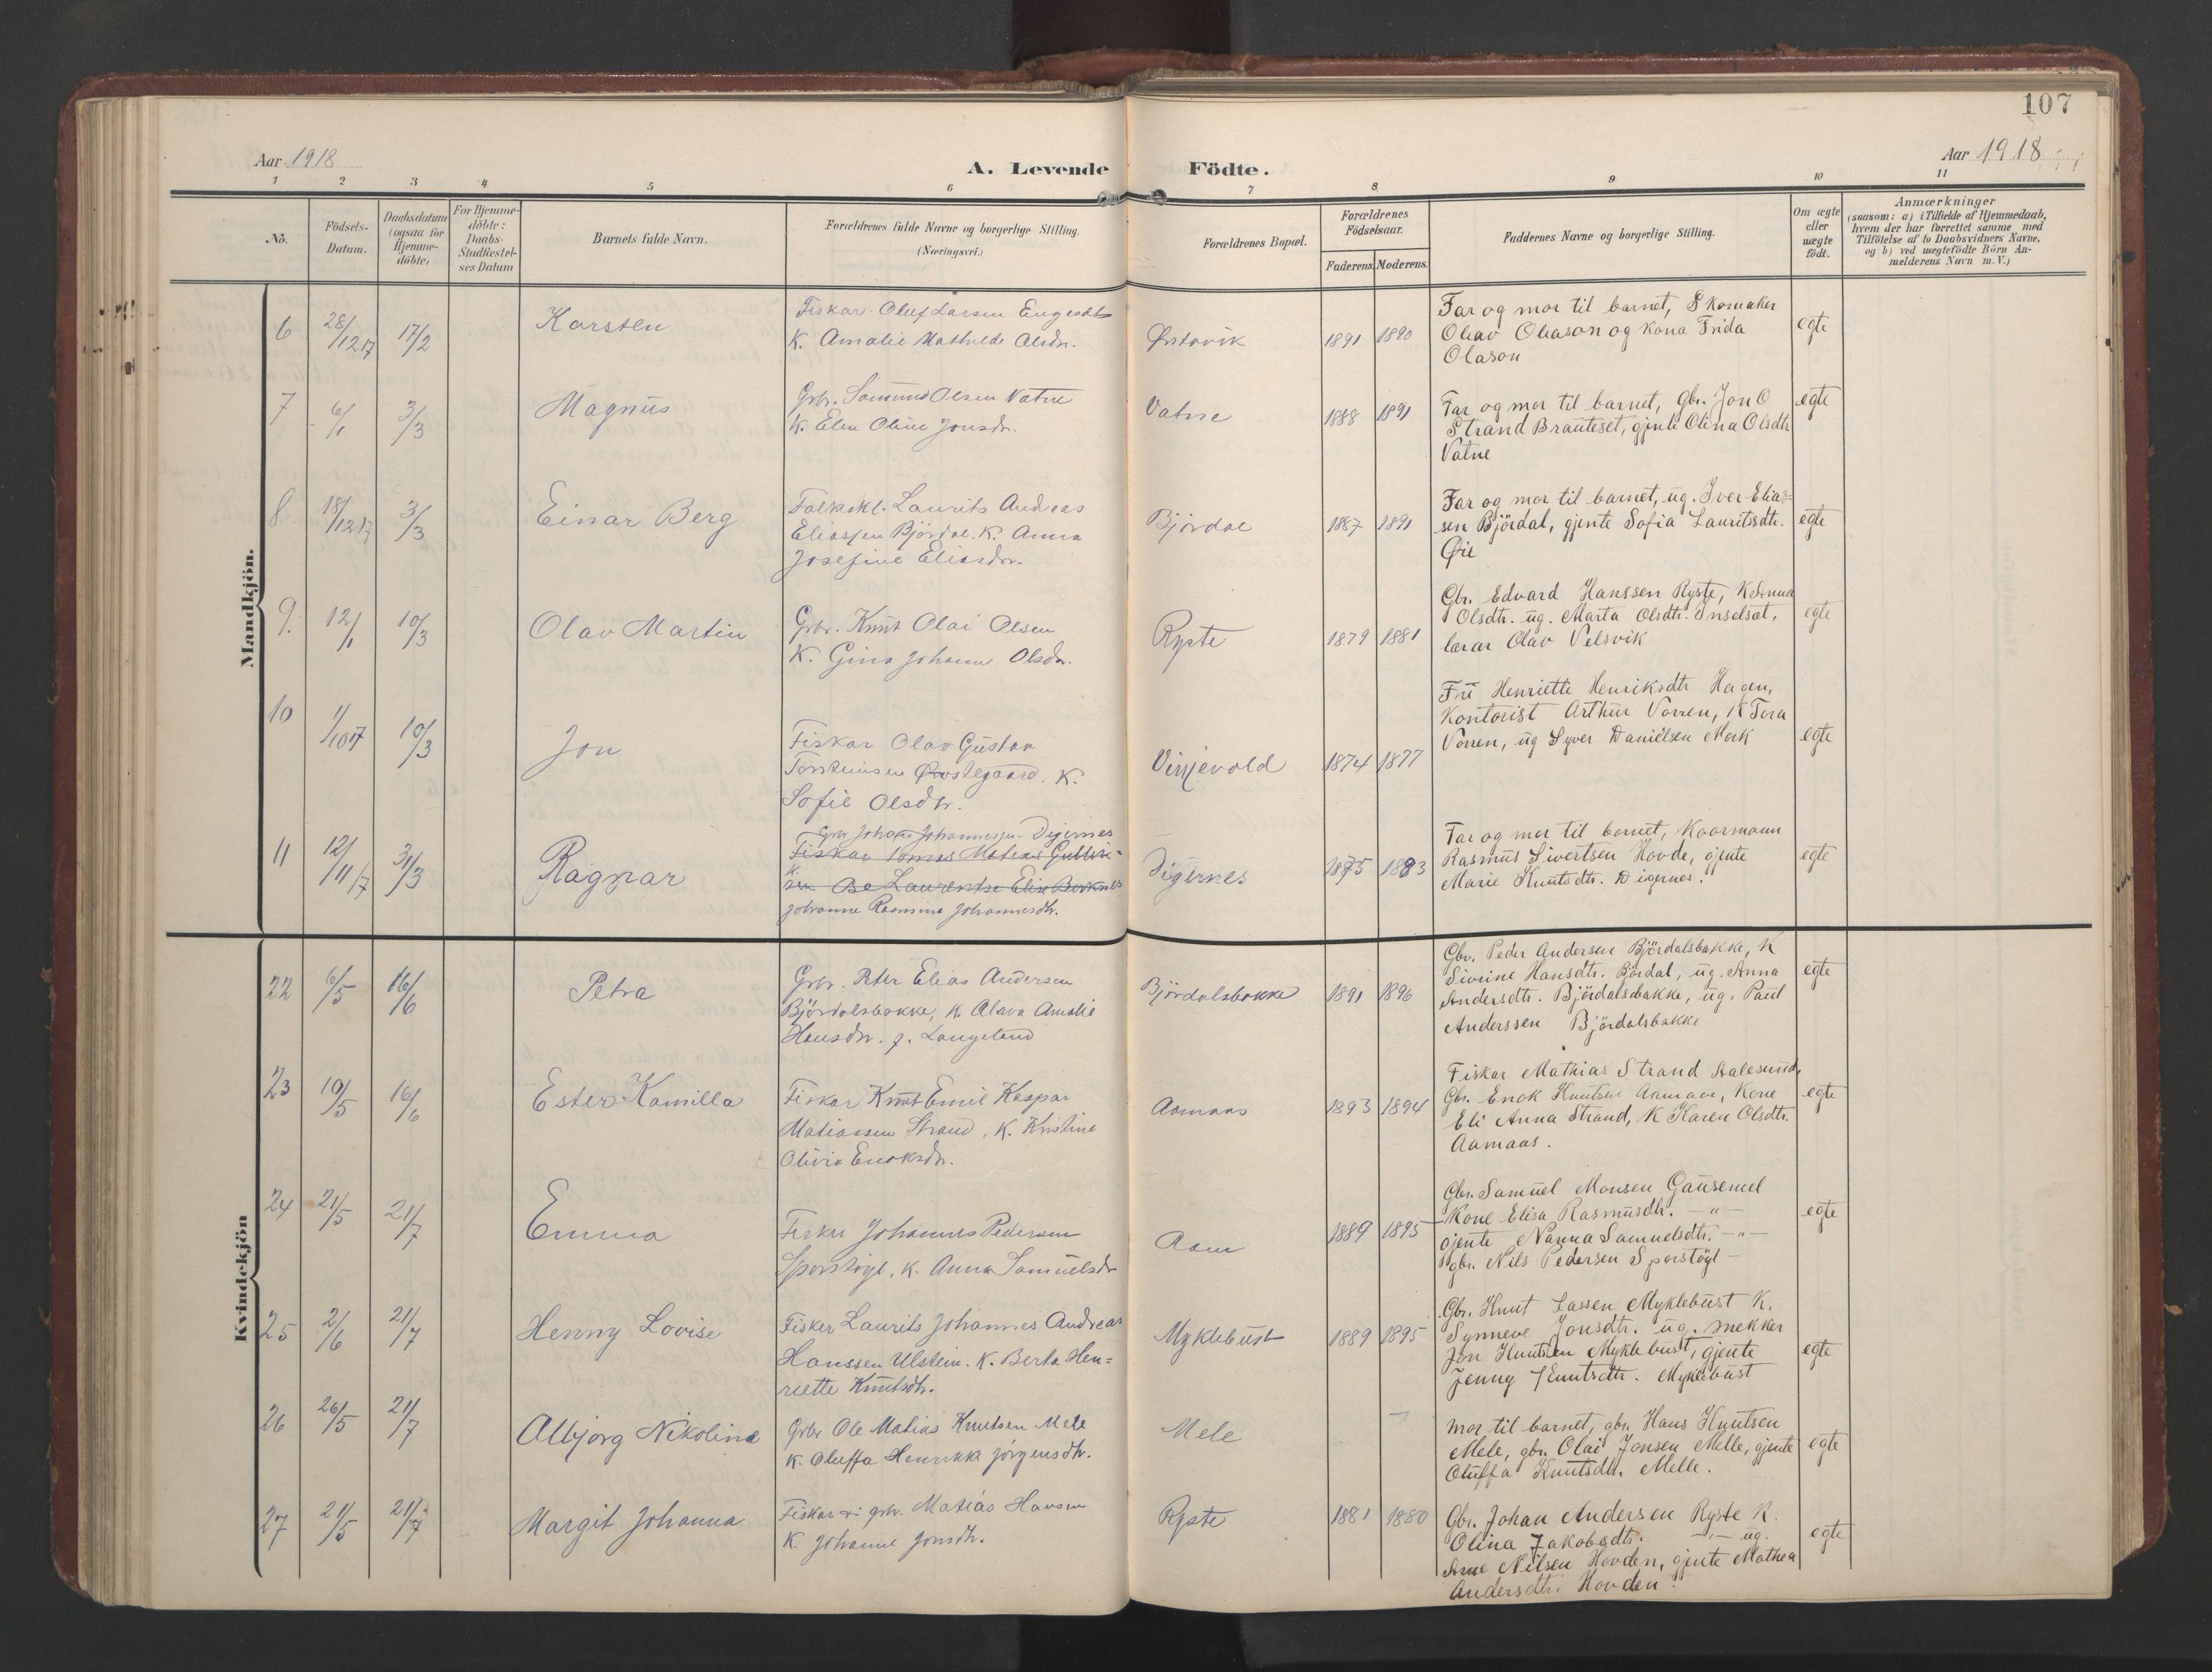 107
Aar 1918
A. Levende Födte.
Aar 1918
1 2 3 4 5 6 7 8 9 10 11
No.
Födsels-
Datum.
Daabsdatum
(ogsaa for
Hjemme-
döbte)
For Hjemme-
döbte:
Daabs-
Stadfestel-
ses Datum
Barnets fulde Navn.
Forældrenes fulde Navne og borgerlige Stilling.
(Næringsvei.)
Forældrenes Bopæl.
Forældrenes
Födselsaar.
Faderens. Moderens.
Faddernes Navne og borgerlige Stilling.
Om ægte
eller
uægte
födt.
Anmærkninger
(saasom: a) i Tilfælde af Hjemmedaab,
hvem der har forrettet samme med
Tilföielse af to Daabsvidners Navne,
og b) ved uægtefödte Börn An-
melderens Navn m. V.)
Mandkjön.
6 28/12 17 17/2 Karsten
Fiskar Oluf Larsen Engeset
K. Amalie Mathilde Olsdr.
Ørstavik 1891 1890
Far og mor til barnet, Skomaker
Olav Olason og kona Frida
Olason
egte
7 6/1 3/3 Magnus
Grbr. Samund Olsen Vatne
K. Elen Oline Jonsdr.
Vatne 1888 1891
Far og mor til barnet, gbr. Jon O
Strand Brauteset, gjente Olina Olsdtr
Vatne
egte
8 18/12 17 3/3 Einar Berg
Folkeskl. Laurits Andreas
Eliassen Björdal. K. Anna
Josefine Eliasdr.
Björdal 1887 1891
Far og mor til barnet, ug. Iver Elias-
sen Björdal, gjente Sofia Lauritsdtr.
Øie
egte
9. 12/1 10/3 Olav Martin
Grbr. Knut Olai Olsen
K. Gina Johanne Olsdr.
Ryste 1879 1881
Gbr. Edvard Hanssen Ryste, K Anna
Olsdtr. ug. Marta Olsdtr. Inselset,
lærar Olav Velsvik
egte
10 1/10 17 10/3 Jon
Fiskar Olav Gustav
Torsteinsen Øvstegaard. K.
Sofie Olsdtr.
Virjevold 1874 1877
Fru Henriette Henriksdtr Hagen,
Kontorist Arthur Vorren, K Tora
Vorren, ug Syver Danielsen Mork
egte
11 12/11 17 31/3 Ragnar
Grbr Johan Johannessen Digernes
Fiskar Tomas Mathias Gullik-
K.
sen Laurentse Elise
Johanne Rasmine Johannesdtr.
Digernes 1875 1883
Far og mor til barnet, Kaarmann
Rasmus Sivertsen Hovde, gjente
Marie Knutsdtr. Digernes.
egte
Kvindekjön
22 6/5 16/6 Petra
Grbr. Peter Elias Andersen
Björdalsbakke, K. Olava Amalie
Hansdtr. f. Langeland
Björdalsbakke 1891 1896
Gbr. Peder Andersen Björdalsbakke, K
Sivrine Hansdtr. Björdal, ug. Anna
Andersdtr. Björdalsbakke, ug. Paul
Anderssen Björdalsbakke
egte
23 10/5 16/6 Ester Kamilla
Fiskar Knut Emil Kaspar
Matiassen Strand, K. Kristine
Olivia Enoksdr.
Aamaas 1893 1894
Fiskar Mathias Strand Aalesund,
Gbr. Enok Knutsen Aamaas, Kone
Eli Anna Strand, K Karen Olsdtr.
Aamaas.
egte
24 21/5 21/7 Emma
Fisker Johannes Pedersen
Sporstöyl, K. Anna Samuelsdr
Aam 1889 1895
Gbr. Samuel Monsen Gausemel
Kone Elisa Rasmusdtr. — " —
gjente Nanna Samuelsdtr. — " —
gbr. Nils Pedersen Sporstöyl —
egte
25 2/6 21/7 Henny Lovise
Fisker Laurits Johannes Andreas
Hanssen Ulstein. K. Berta Hen-
riette Knutsdtr.
Myklebust 1889 1895
Gbr. Knut Lassen Myklebust K.
Synneve Jonsdtr. ug. snekker
Jon Knutsen Myklebust, gjente
Jenny Knutsdtr. Myklebust
egte
26 26/5 21/7 Albjörg Nikoline
Grbr Ole Matias Knutsen Mele
K. Oluffa Henrikka Jörgensdtr.
Mele
Mor til barnet, gbr. Hans Knutsen
Mele, gbr. Olai Jonsen Melle, gjente
Oluffa Knutsdtr. Melle.
egte
27 21/5 21/7 Margit Johanna
Fiskar og grbr. Matias Hansen
K. Johanne Jonsdtr.
Ryste 1881 1880
Gbr. Johan Andersen Ryste K.
Olina Jakobsdtr. — " — ug.
Arne Nilsen Hovden, gjente Mathea
Andersdtr. Hovden.
egte